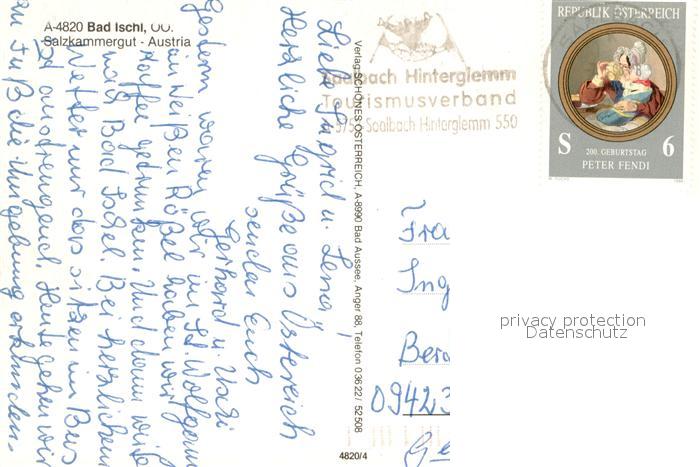 A-4820 Bad Ischl, OÖ.
Salzkammergut - Austria
Verlag SCHÖNES ÖSTERREICH, A-8990 Bad Aussee, Anger 88, Telefon 03622/ 52508
4820/4
Saalbach Hinterglemm
Tourismusverband
5753 Saalbach Hinterglemm 550
REPUBLIK ÖSTERREICH
S 6
200. GEBURTSTAG
PETER FENDI
Liebe Ingrid u. Lena,
Herzliche Grüße aus Österreich
senden Euch
Gerhard u. Uschi
Gestern waren wir in St. Wolfgang
im weißen Rößl haben wir
Kaffee getrunken. Und dann
nach Bad Ischl. Bei herrlichem
Wetter nur das sitzen im Bus
ist anstrengend. Heute gehen wir
zu Fuß die Umgebung erkunden.
Fra
Ing
Ber
09423
Ge
privacy protection
Datenschutz